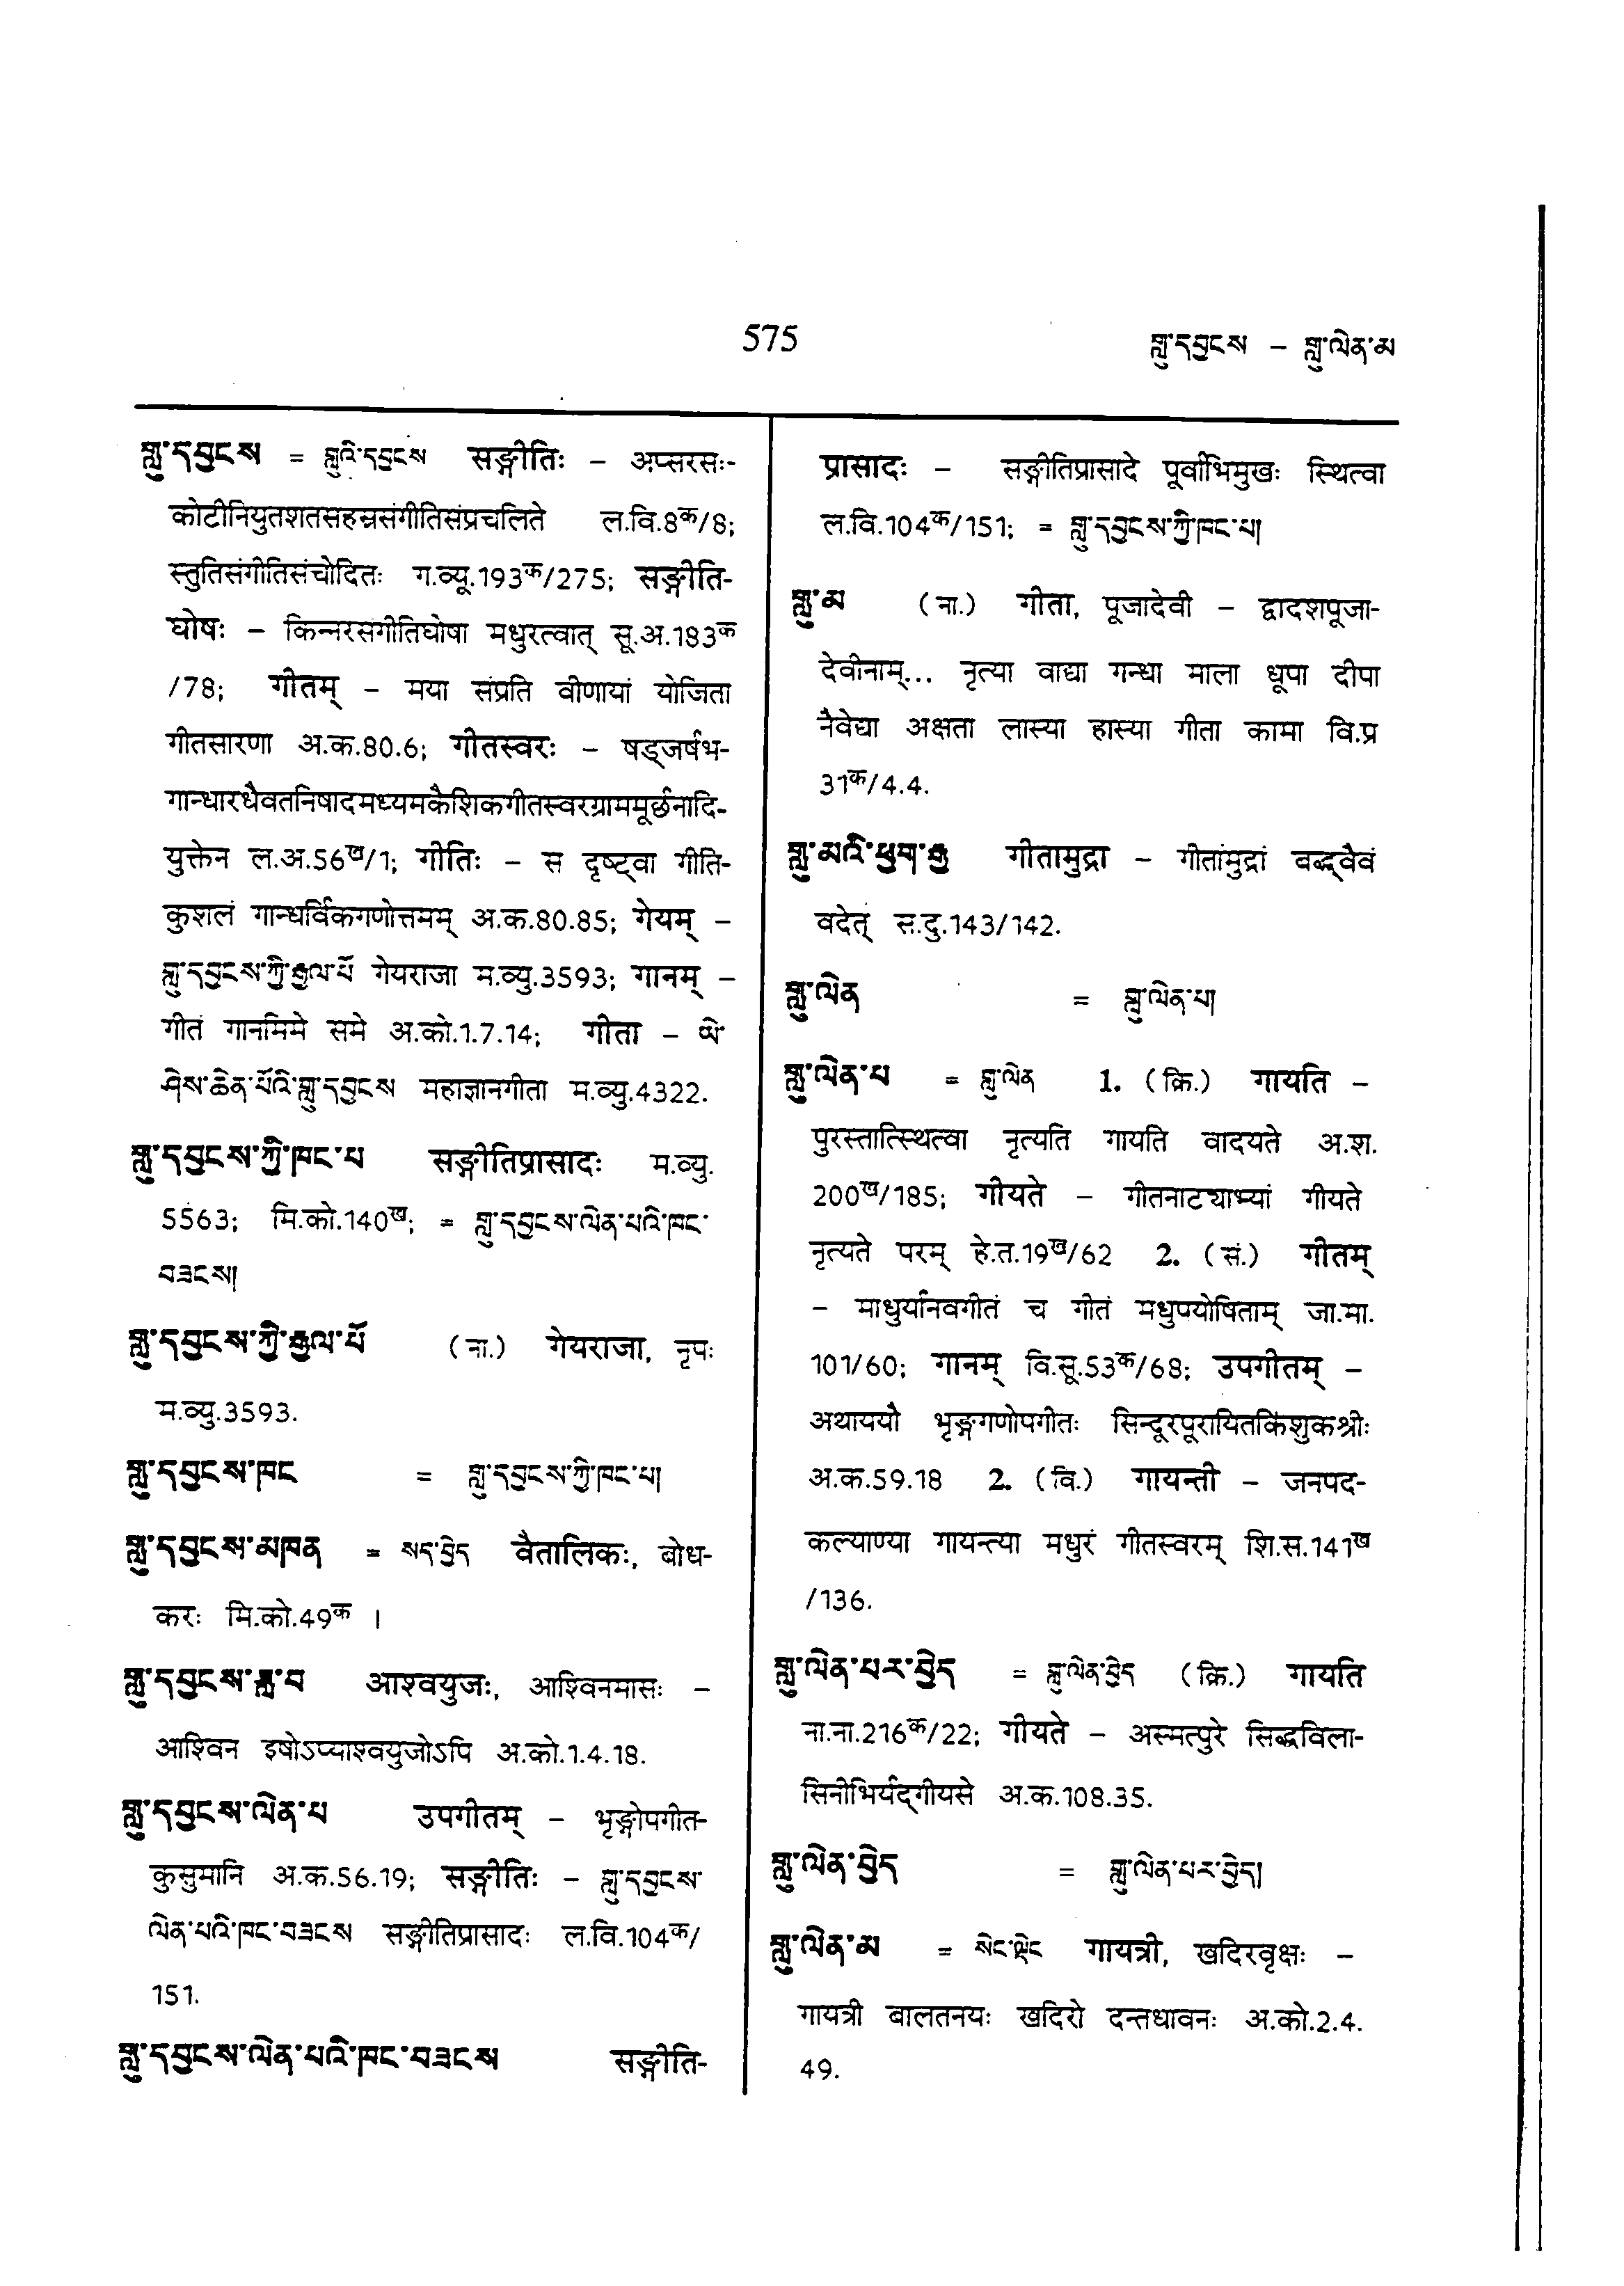 575
གླུ་དབྱངས – གླུ་ལེན་མ
གླུ་དབྱངས = གླུའི་དབྱངས सङ्गीतिः – अप्सरसः-
कोटीनियुतशतसहस्रसंगीतिसंप्रचलिते ल.वि.8क/8;
स्तुतिसंगीतिसंचोदितः ग.व्यू.193क/275; सङ्गीति-
घोषः – किन्नरसंगीतिघोषा मधुरत्वात् सू.अ.183क
/78; गीतम् – मया संप्रति वीणायां योजिता
गीतसारणा अ.क.80.6; गीतस्वरः – षड्जर्षभ-
गान्धारधैवतनिषादमध्यमकैशिकगीतस्वरग्राममूर्छनादि-
युक्तेन ल.अ.56ख/1; गीतिः – स दृष्ट्वा गीति-
कुशलं गान्धर्विकगणोत्तमम् अ.क.80.85; गेयम् –
གླུ་དབྱངས་ཀྱི་རྒྱལ་པོ गेयराजा म.व्यु.3593; गानम् –
गीतं गानमिमे समे अ.को.1.7.14; गीता – ཡེ་
ཤེས་ཆེན་པོའི་གླུ་དབྱངས महाज्ञानगीता म.व्यु.4322.
གླུ་དབྱངས་ཀྱི་ཁང་པ सङ्गीतिप्रासादः म.व्यु.
5563; मि.को.140ख; = གླུ་དབྱངས་ལེན་པའི་ཁང་
བཟངས།
གླུ་དབྱངས་ཀྱི་རྒྱལ་པོ (ना.) गेयराजा, नृपः
म.व्यु.3593.
གླུ་དབྱངས་ཁང = གླུ་དབྱངས་ཀྱི་ཁང་པ།
གླུ་དབྱངས་མཁན = སད་བྱེད वैतालिकः, बोध-
करः मि.को.49क ।
གླུ་དབྱངས་ཟླ་བ आश्वयुजः, आश्विनमासः –
आश्विन इषोऽप्याश्वयुजोऽपि अ.को.1.4.18.
གླུ་དབྱངས་ལེན་པ उपगीतम् – भृङ्गोपगीत-
कुसुमानि अ.क.56.19; सङ्गीतिः – གླུ་དབྱངས་
ལེན་པའི་ཁང་བཟངས सङ्गीतिप्रासादः ल.वि.104क/
151.
གླུ་དབྱངས་ལེན་པའི་ཁང་བཟངས सङ्गीति-
प्रासादः – सङ्गीतिप्रासादे पूर्वाभिमुखः स्थित्वा
ल.वि.104क/151; = གླུ་དབྱངས་ཀྱི་ཁང་པ།
གླུ་མ (ना.) गीता, पूजादेवी – द्वादशपूजा-
देवीनाम्... नृत्या वाद्या गन्धा माला धूपा दीपा
नैवेद्या अक्षता लास्या हास्या गीता कामा वि.प्र
31क/4.4.
གླུ་མའི་ཕྱག་རྒྱ गीतामुद्रा – गीतांमुद्रां वद्ध्वैवं
वदेत् स.दु.143/142.
གླུ་ལེན = གླུ་ལེན་པ།
གླུ་ལེན་པ = གླུ་ལེན 1. (क्रि.) गायति –
पुरस्तात्स्थित्वा नृत्यति गायति वादयते अ.श.
200ख/185; गीयते – गीतनाट्याभ्यां गीयते
नृत्यते परम् हे.त.19ख/62 2. (सं.) गीतम्
– माधुर्यानवगीतं च गीतं मधुपयोषिताम् जा.मा.
101/60; गानम् वि.सू.53क/68; उपगीतम् –
अथाययौ भृङ्गगणोपगीतः सिन्दूरपूरायितकिंशुकश्रीः
अ.क.59.18 2. (वि.) गायन्ती – जनपद-
कल्याण्या गायन्त्या मधुरं गीतस्वरम् शि.स.141ख
/136.
གླུ་ལེན་པར་བྱེད = གླུ་ལེན་བྱེད (क्रि.) गायति
ना.ना.216क/22; गीयते – अस्मत्पुरे सिद्धविला-
सिनीभिर्यद्गीयसे अ.क.108.35.
གླུ་ལེན་བྱེད = གླུ་ལེན་པར་བྱེད།
གླུ་ལེན་མ = སེང་ལྡེང गायत्री, खदिरवृक्षः –
गायत्री बालतनयः खदिरो दन्तधावनः अ.को.2.4.
49.